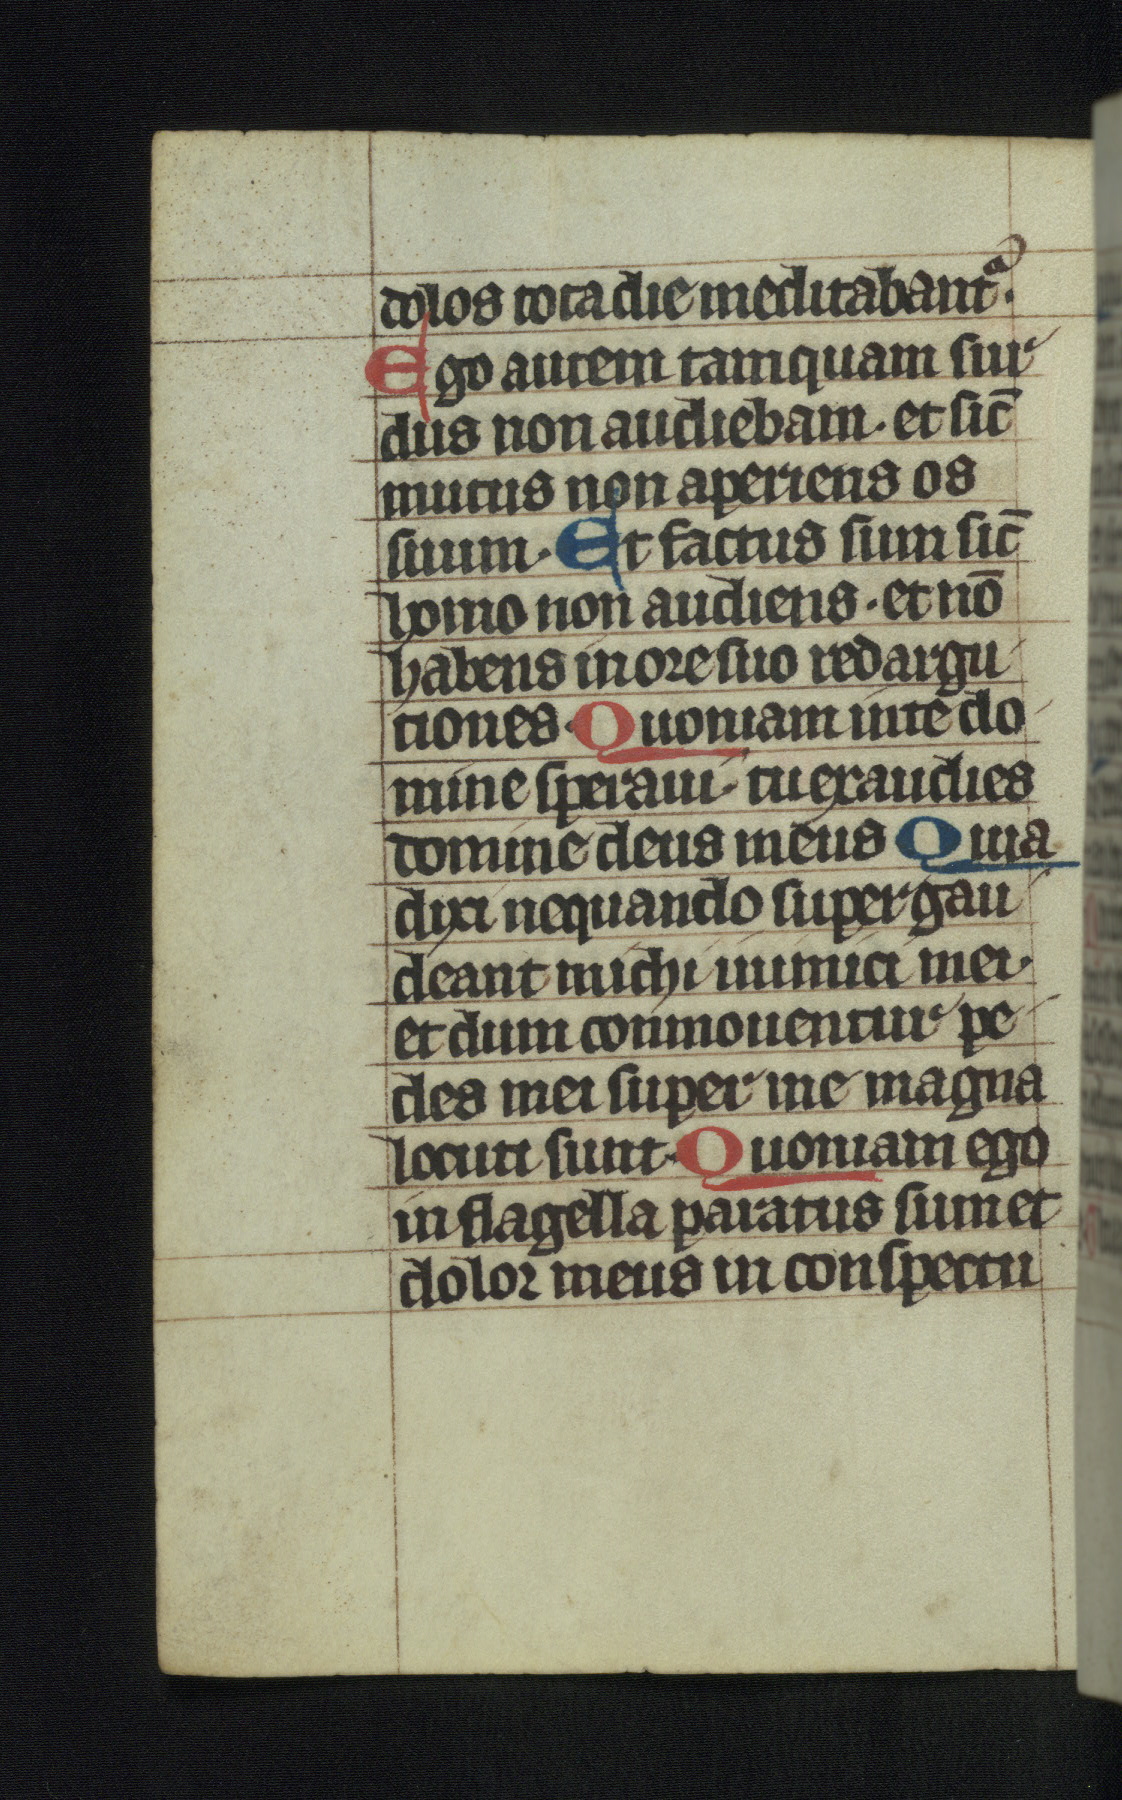 dolos tota die meditabantᵃ.
Ego autem tamquam sur
dus non audiebam. et sic̄
mutus non aperiens os
suum. Et factus sum sic̄
homo non audiens. et nō
habens in ore suo redargu
tiones. Quoniam in te do
mine speraui. tu exaudies
domine deus meus Quia
dixi nequando supergau
deant michi inimici mei.
et dum conmouentur pe
des mei super me magna
locuti sunt. Quoniam ego
in flagella paratus sum et
dolor meus in conspectu